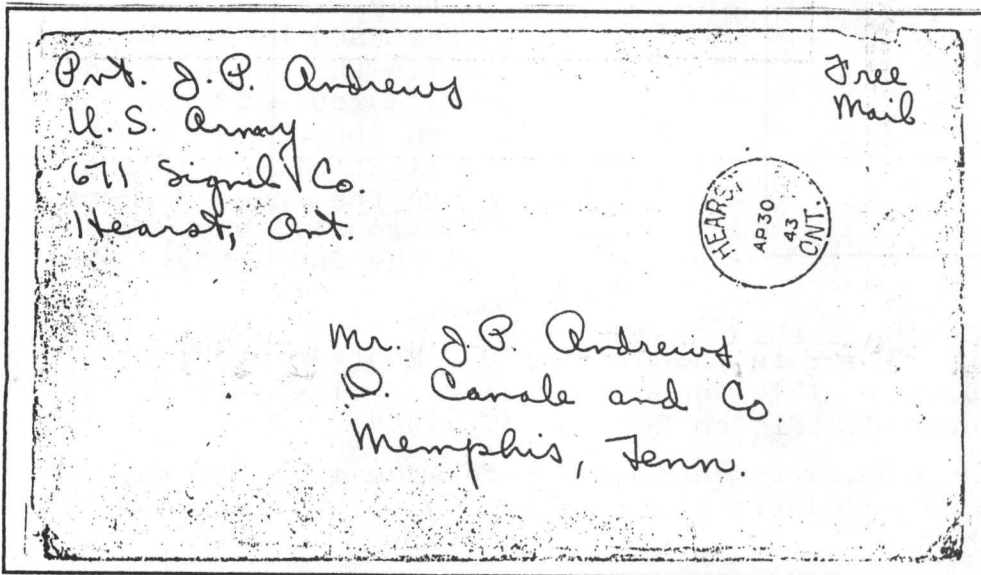 Pvt. J. P. Andrews
U.S. Army
671 Signal Co.
Hearst, Ont.
Free
Mail
HEARST,
AP 30
43
ONT.
Mr. J. P. Andrews
D. Canale and Co
Memphis, Tenn.